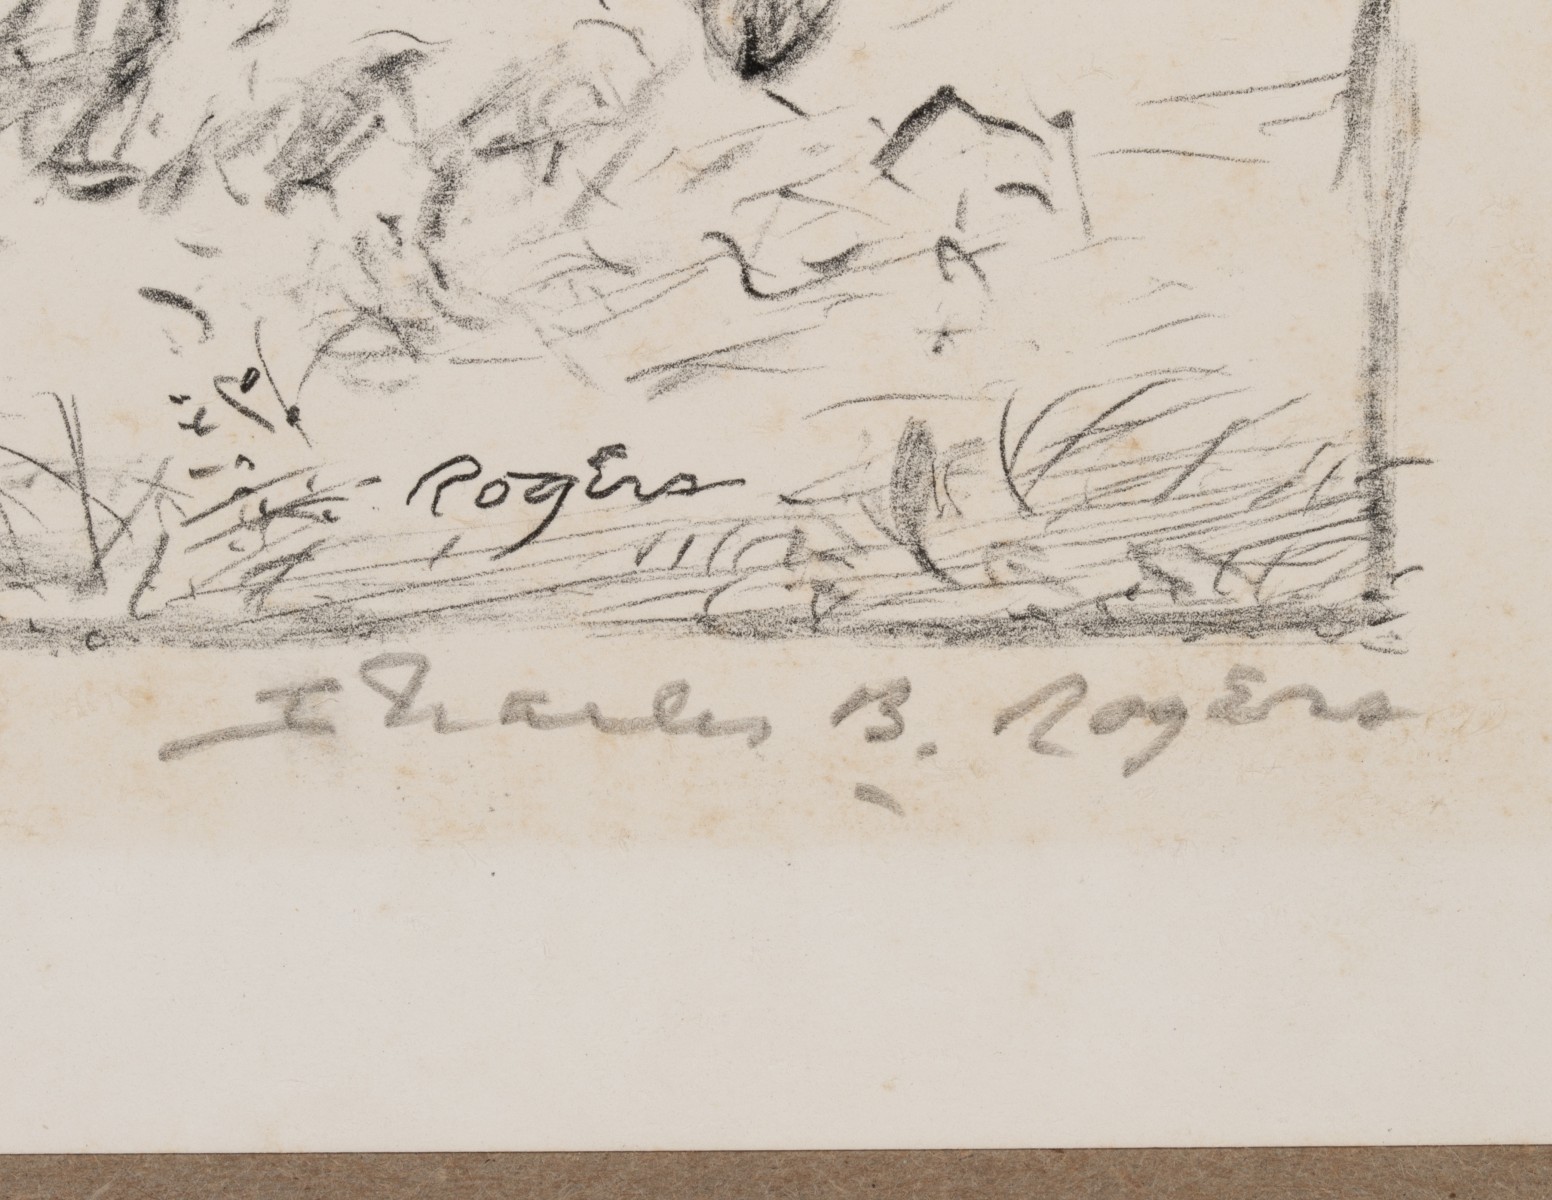 Rogers
Charles B. Rogers